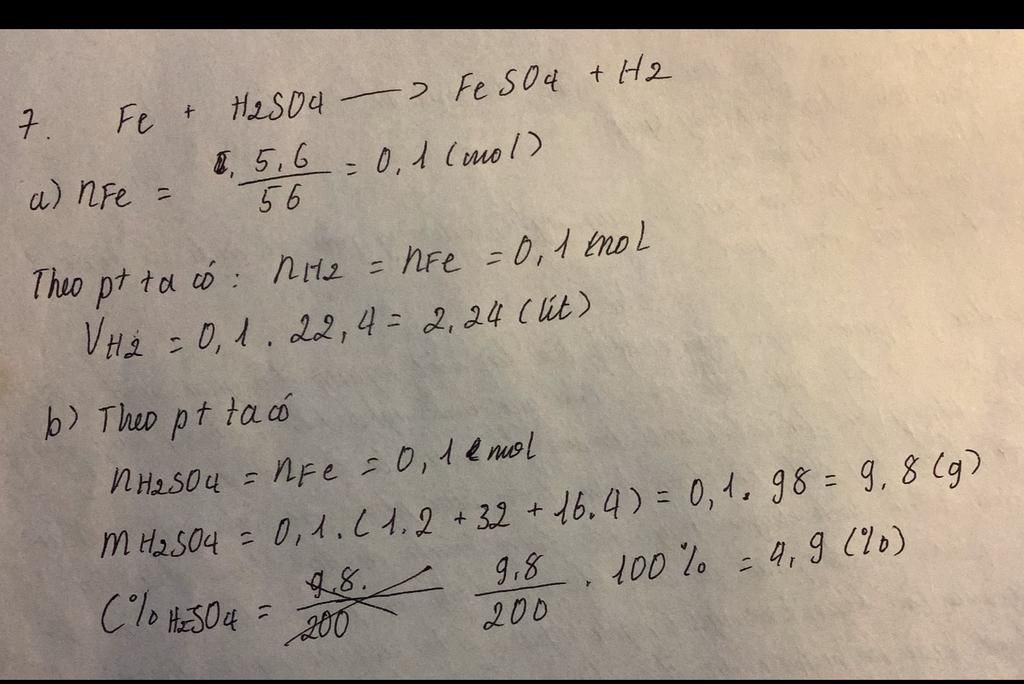 7. Fe + H2SO4 → FeSO4 + H2
a) nFe = 5,6/56 = 0,1 (mol)
Theo pt ta có: nH2 = nFe = 0,1 mol
VH2 = 0,1 . 22,4 = 2,24 (lít)
b) Theo pt ta có
nH2SO4 = nFe = 0,1 mol
mH2SO4 = 0,1.(1.2 + 32 + 16.4) = 0,1. 98 = 9,8 (g)
C%H2SO4 = 9,8/200 . 100% = 4,9 (%)